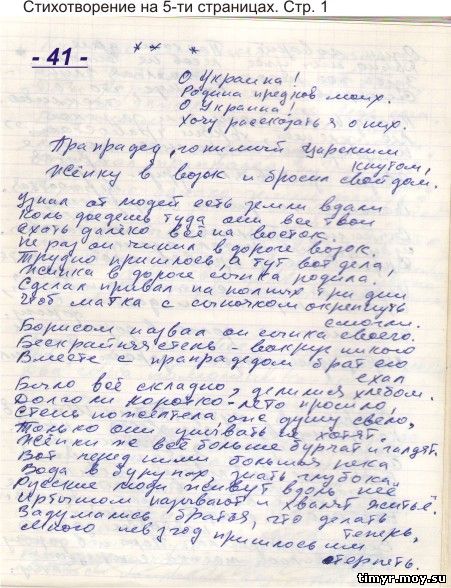 Стихотворение на 5-ти страницах. Стр. 1
- 41 -
* * *
О Украина!
Родина предков моих.
О Украина!
Хочу рассказать я о них.
Прапрадед, гонимый царским кнутом,
Жёнку в возок и бросил свой дом.
Узнал от людей есть земли вдали
Коль доедешь туда они все твои
Ехать далёко всё на восток.
Не раз он чинил в дороге возок.
Трудно пришлось, а тут вот дела,
Жёнка в дороге сынка родила.
Сделал привал на полных три дни
Чтоб матка с сыночком окрепнуть
смогли.
Борисом назвал он сынка своего.
Бескрайняя степь - вокруг никого
Вместе с прапрадедом брат его
ехал
Было всё складно, делился хлебом.
Долго ли коротко - лето прошло,
Степь пожелтела
Только они
Жёнки же всё больше бурчат и галдят.
Вот перед ними большая река
Вода в бурунах, знать глубока.
Русские люди живут вдоль неё
Иртышом называют и хвалят житьё.
Задумались братья, что делать
теперь,
Много невзгод пришлось им
стерпеть.
timyr.moy.su